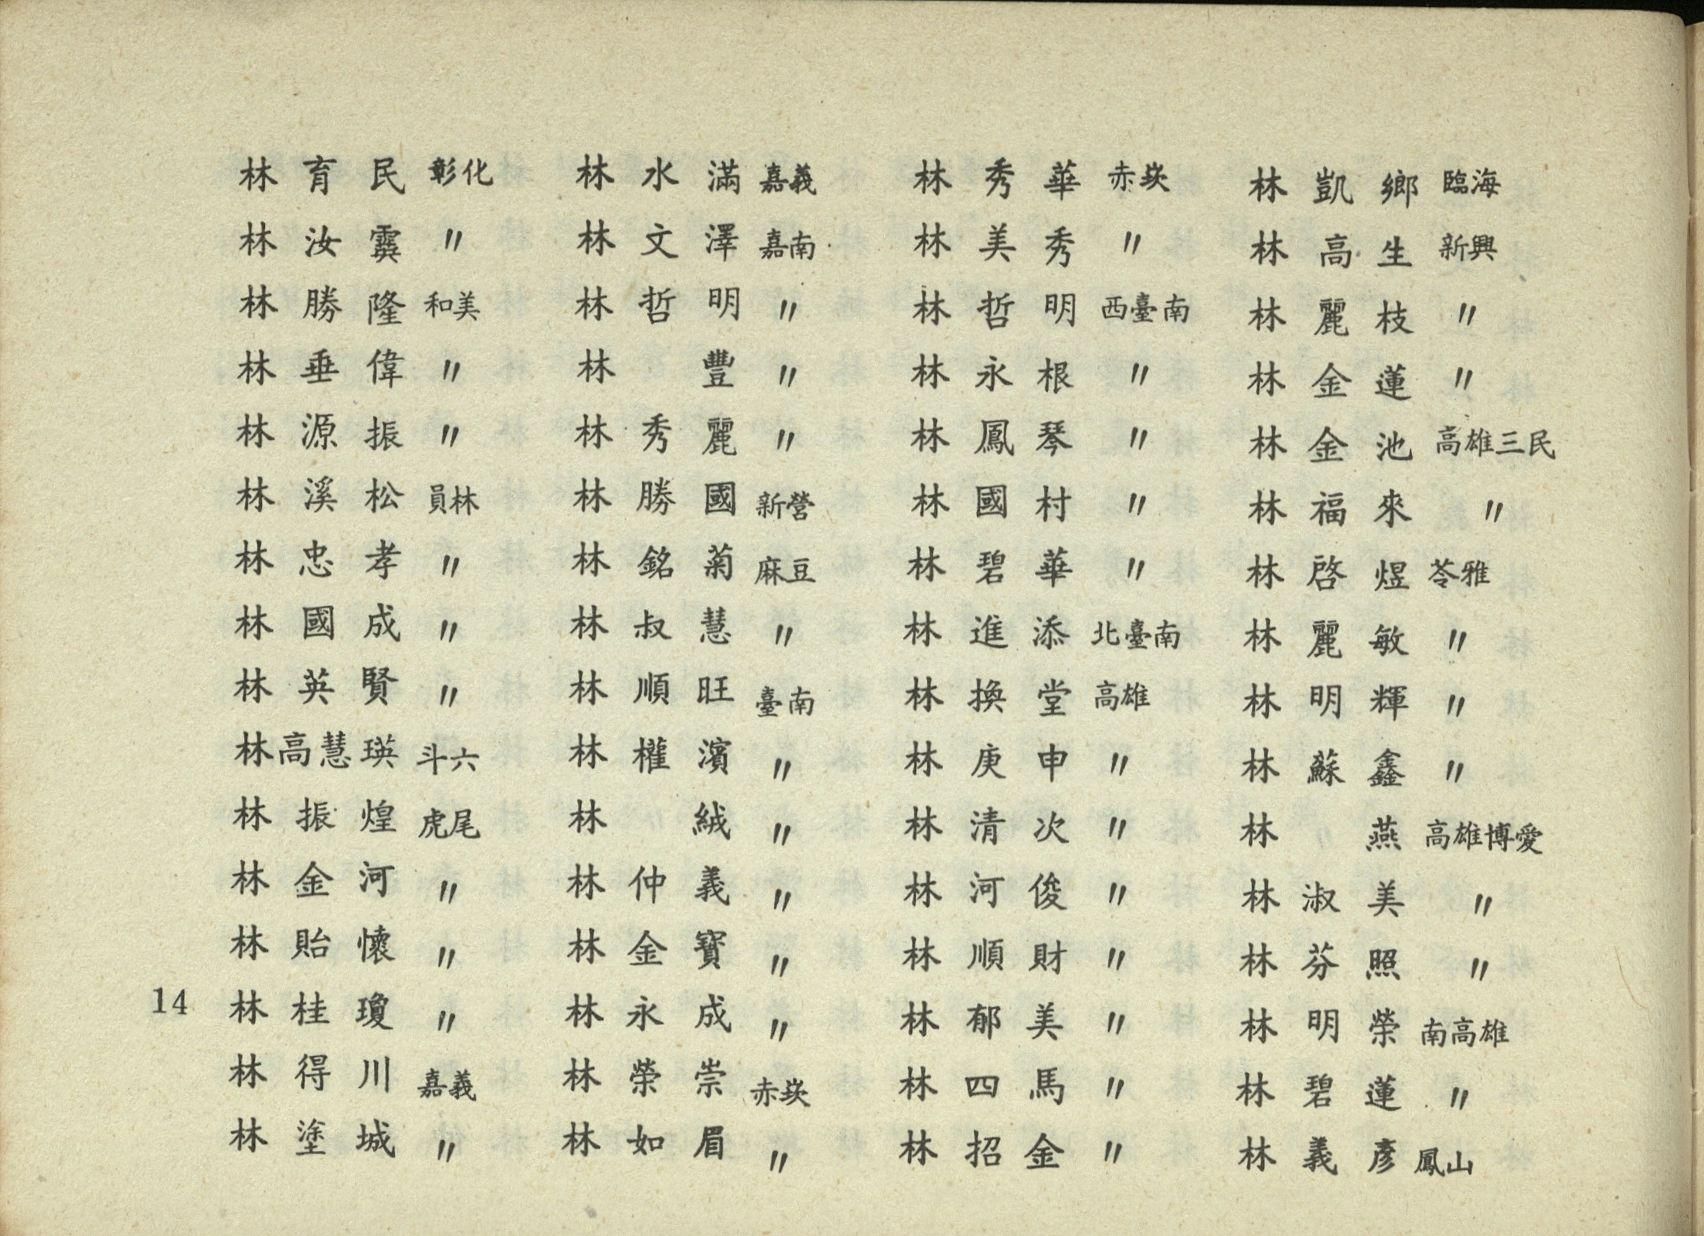 林育民 彰化
林汝霙 〃
林勝隆 和美
林垂偉 〃
林源振 〃
林溪松 員林
林忠孝 〃
林國成 〃
林英賢 〃
林高慧瑛 斗六
林振煌 虎尾
林金河 〃
林貽懷 〃
林桂瓊 〃
林得川 嘉義
林塗城 〃
林水滿 嘉義
林文澤 嘉南
林哲明 〃
林豐 〃
林秀麗 〃
林勝國 新營
林銘菊 麻豆
林叔慧 〃
林順旺 臺南
林權濱 〃
林絨 〃
林仲義 〃
林金寶 〃
林永成 〃
林榮崇 赤崁
林如眉 〃
林秀華 赤崁
林美秀 〃
林哲明 西臺南
林永根 〃
林鳳琴 〃
林國村 〃
林碧華 〃
林進添 北臺南
林換堂 高雄
林庚申 〃
林清次 〃
林河俊 〃
林順財 〃
林郁美 〃
林四馬 〃
林招金 〃
林凱鄉 臨海
林高生 新興
林麗枝 〃
林金蓮 〃
林金池 高雄三民
林福來 〃
林啓煜 苓雅
林麗敏 〃
林明輝 〃
林蘇鑫 〃
林燕 高雄博愛
林淑美 〃
林芬照 〃
林明榮 南高雄
林碧蓮 〃
林義彥 鳳山
14